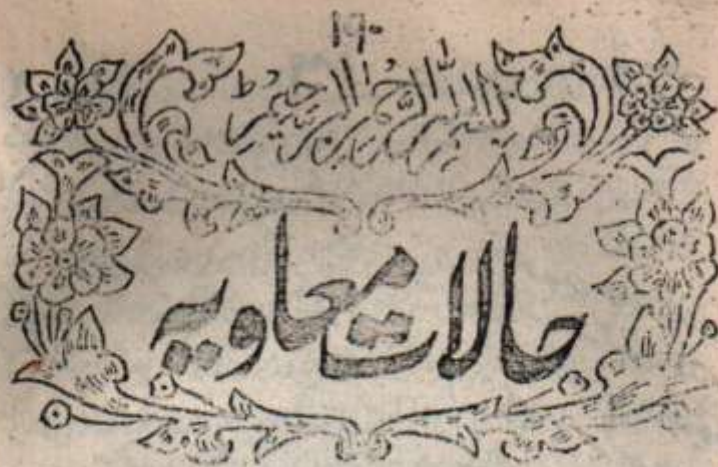 ۱۹۰
بسم اللہ الرحمن الرحیم ط
حالات معاویہ